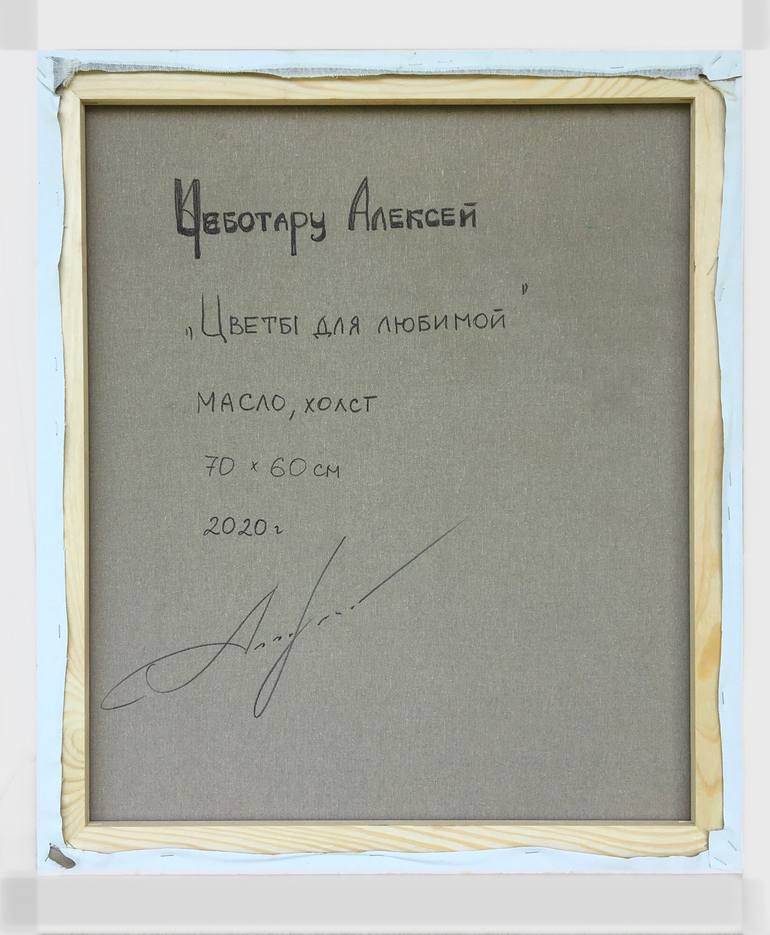 Чеботару Алексей
„Цветы для любимой"
масло, холст
70 × 60 см
2020 г